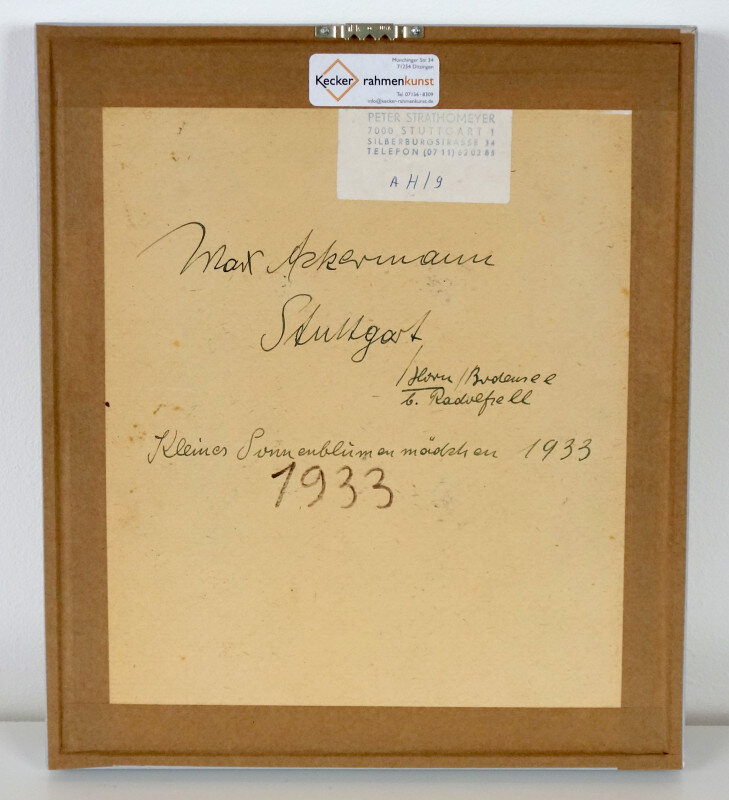 Münchinger Str 34
71254 Ditzingen
Kecker rahmenkunst
Tel. 07156-8309
info@kecker-rahmenkunst.de
PETER STRATHOMEYER
7000 STUTTGART 1
SILBERBURGSTRASSE 34
TELEFON (07 11) 62 02 85
AH/9
Max Ackermann
Stuttgart
/Horn/Bodensee
b. Radolfzell
Kleines Sonnenblumenmädchen 1933
1933